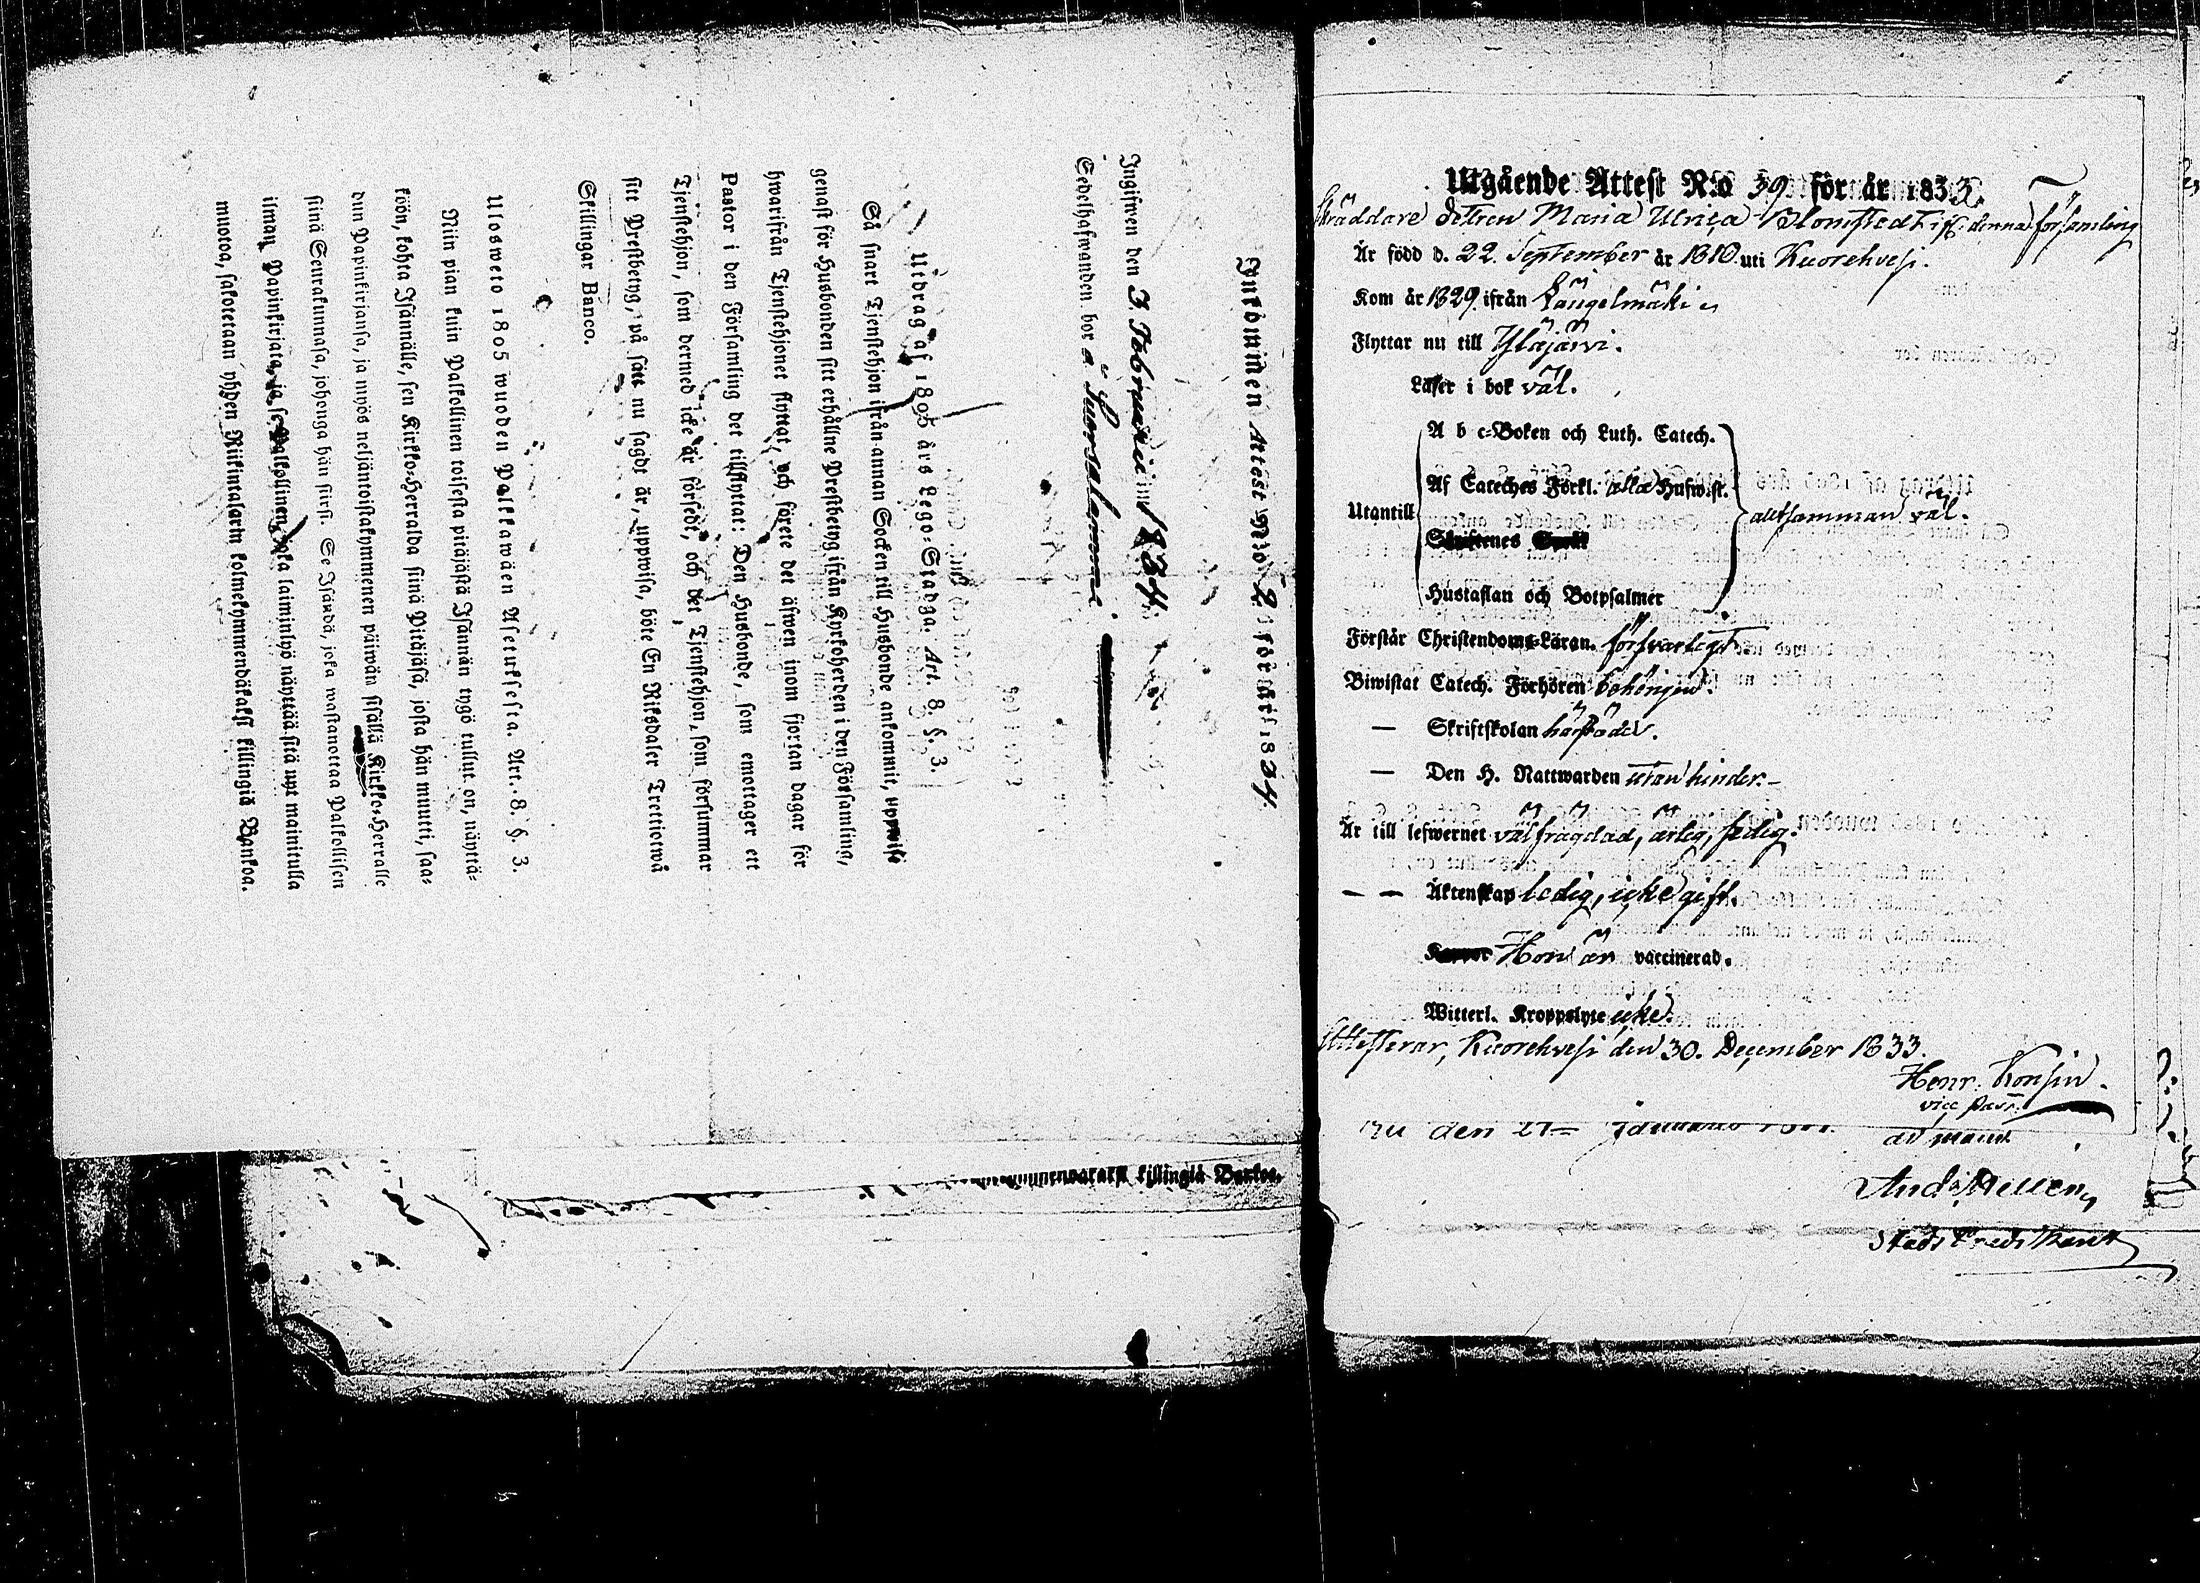 Inkommen Attest N:o 2 för år 1834.
Ingifwen den 3. Februarii 1834.
Sedelhafwanden bor å Suorsalammi.
Utdrag af 1805 års Lego-Stadga. Art. 8. §. 3.
Så snart Tjenstehjon ifrån annan Socken till Husbonde ankommit, uppwise
genast för Husbonden sitt erhållne Prestbetyg ifrån Kyrkoherden i den Församling,
hwarifrån Tjenstehjonet flyttat, och förete det äfwen inom fjortan dagar för
Pastor i den Församling det tillflyttat: Den Husbonde, som emottager ett
Tjenstehjon, som dermed icke är försedt, och det Tjenstehjon, som försummar
sitt Prestbetyg, på sätt nu sagdt är, uppwisa, böte En Riksdaler Trettiotwå
Skillingar Banco.
Ulosweto 1805 wuoden Palkkawäen Asetuksesta. Art. 8. §. 3.
Niin pian kuin Palkollinen toisesta pitäjästä Isännän tygö tullut on, näyttä-
köön, kohta Isännälle, sen Kirkko-Herralda siinä Pitäjäsä, josta hän muutti, saa-
dun Papinkirjansa, ja myös neljäntoistakymmenen päiwän sisällä Kirkko-Herralle
siinä Seurakunnasa, johonga hän siirsi. Se Isändä, joka wastanottaa Palkollisen
ilman Papinkirjata, ja se Palkollinen, joka laiminlyö näyttää sitä nyt mainitulla
muotoa, sakotetaan yhden Riikintalarin kolmekymmendäkaksi killingiä Bankoa.
killingiä Bankoa.
Utgående Attest N:o 39 för år 1833.
Skräddare Dottren Maria Ulrica Blomstedt if. denna församling
Är född d. 22. September år 1810 uti Kuorehvesi.
Kom år 1829 ifrån Längelmäki
Flyttar nu till Ylöjärvi.
Läser i bok väl.
A b c-Boken och Luth. Catech.
Utantill Af Cateches Förkl. alla Hufwst. alltsamman väl.
Skriftenes Språk
Hustaflan och Botpsalmer
Förstår Christendoms-Läran. försvarligt
Biwistat Catech. Förhören behörigen.
— Skriftskolan härstädes.
— Den H. Nattwarden utan hinder.
Är till lefwernet välfrägdad, ärlig, sedig.
— — Äktenskap ledig, icke gift.
Hon är vaccinerad.
Witterl. Kroppslyte icke.
Attesterar, Kuorehvesi den 30. December 1833.
Henr. Konsin.
vice past.
den 27
Stads Predikant